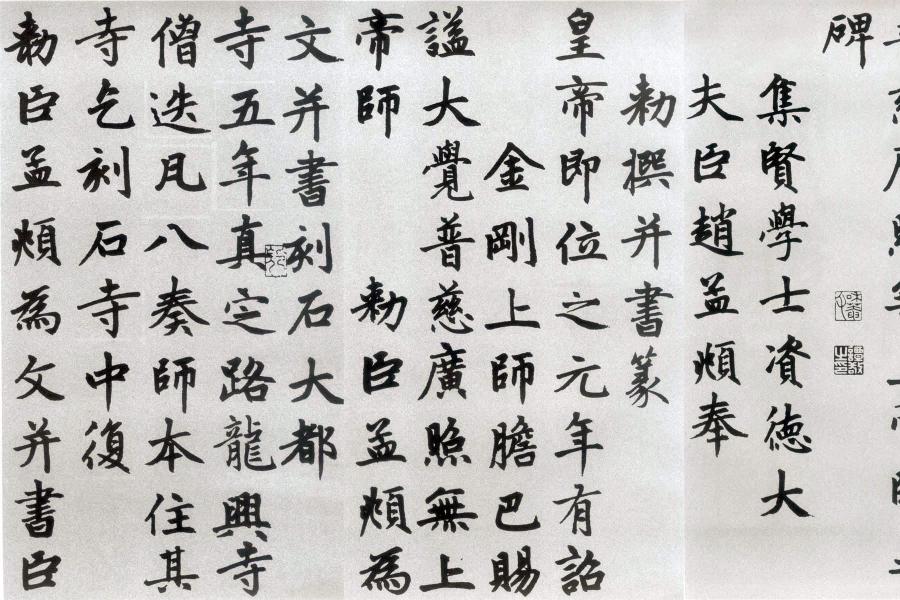 碑
集賢學士資德大
夫臣趙孟頫奉
勅撰并書篆
皇帝即位之元年有詔
金剛上師膽巴賜
謚大覺普慈廣照無上
帝師 勅臣孟頫為
文并書刻石大都
寺五年真定路龍興寺
僧迭凡八奏師本住其
寺乞刻石寺中復
勅臣孟頫為文并書臣